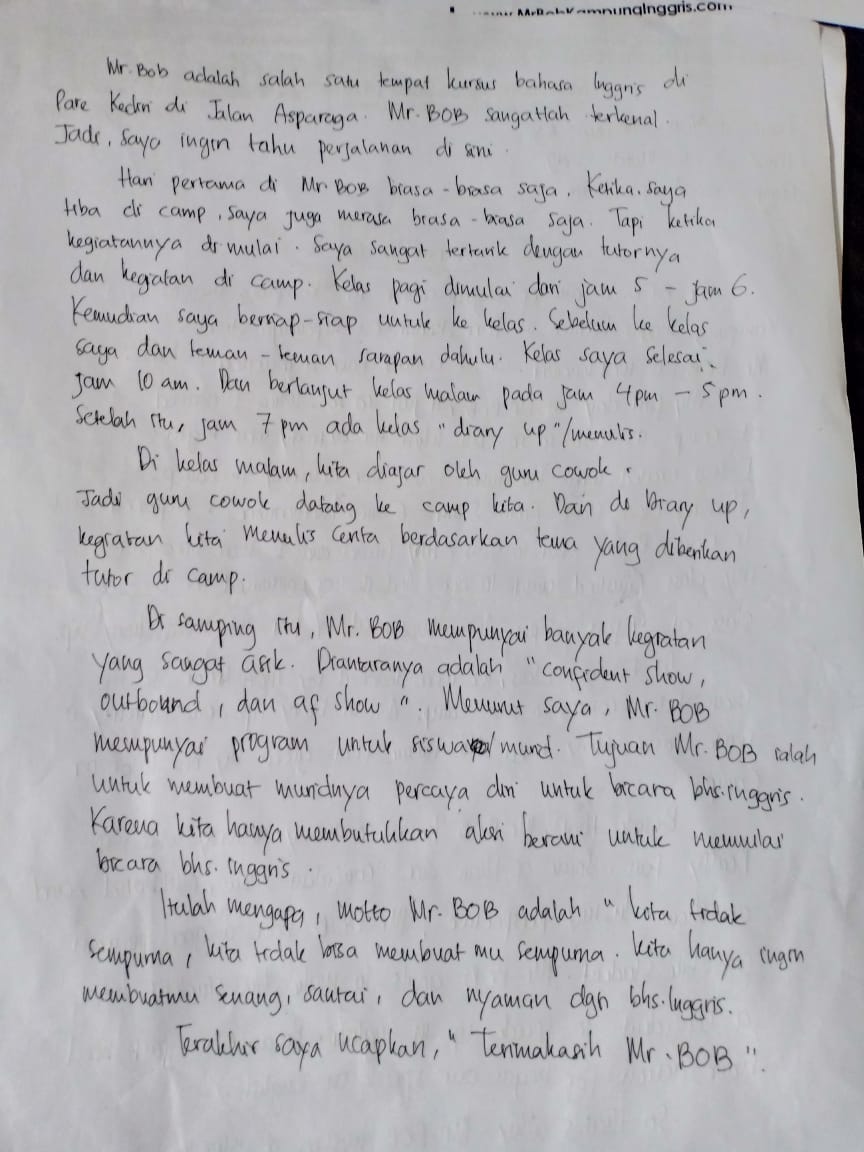 www.MrBobKampungInggris.com
Mr. Bob adalah salah satu tempat kursus bahasa Inggris di
Pare Kediri di Jalan Asparaga. Mr. BOB sangatlah terkenal.
Jadi, saya ingin tahu perjalanan di sini.
Hari pertama di Mr. BOB biasa-biasa saja. Ketika saya
tiba di camp, saya juga merasa biasa-biasa saja. Tapi ketika
kegiatannya di mulai. Saya sangat tertarik dengan tutornya
dan kegiatan di camp. Kelas pagi dimulai dari jam 5 - jam 6.
Kemudian saya bersiap-siap untuk ke kelas. Sebelum ke kelas
saya dan teman-teman sarapan dahulu. Kelas saya selesai
jam 10 am. Dan berlanjut kelas malam pada jam 4pm - 5pm.
Setelah itu, jam 7 pm ada kelas "diary up"/menulis.
Di kelas malam, kita diajar oleh guru cowok.
Jadi guru cowok datang ke camp kita. Dan di Diary up,
kegiatan kita menulis cerita berdasarkan tema yang diberikan
tutor di camp.
Di samping itu, Mr. BOB mempunyai banyak kegiatan
yang sangat asik. Diantaranya adalah "confident show,
outbound, dan af show". Menurut saya, Mr. BOB
mempunyai program untuk siswa/murid. Tujuan Mr. BOB ialah
untuk membuat muridnya percaya diri untuk bicara bhs. inggris.
Karena kita hanya membutuhkan aksi berani untuk memulai
bicara bhs. inggris.
Itulah mengapa, motto Mr. BOB adalah "kita tidak
sempurna, kita tidak bisa membuat mu sempurna. Kita hanya ingin
membuatmu senang, santai, dan nyaman dgn bhs. Inggris.
Terakhir saya ucapkan, "Terimakasih Mr. BOB".